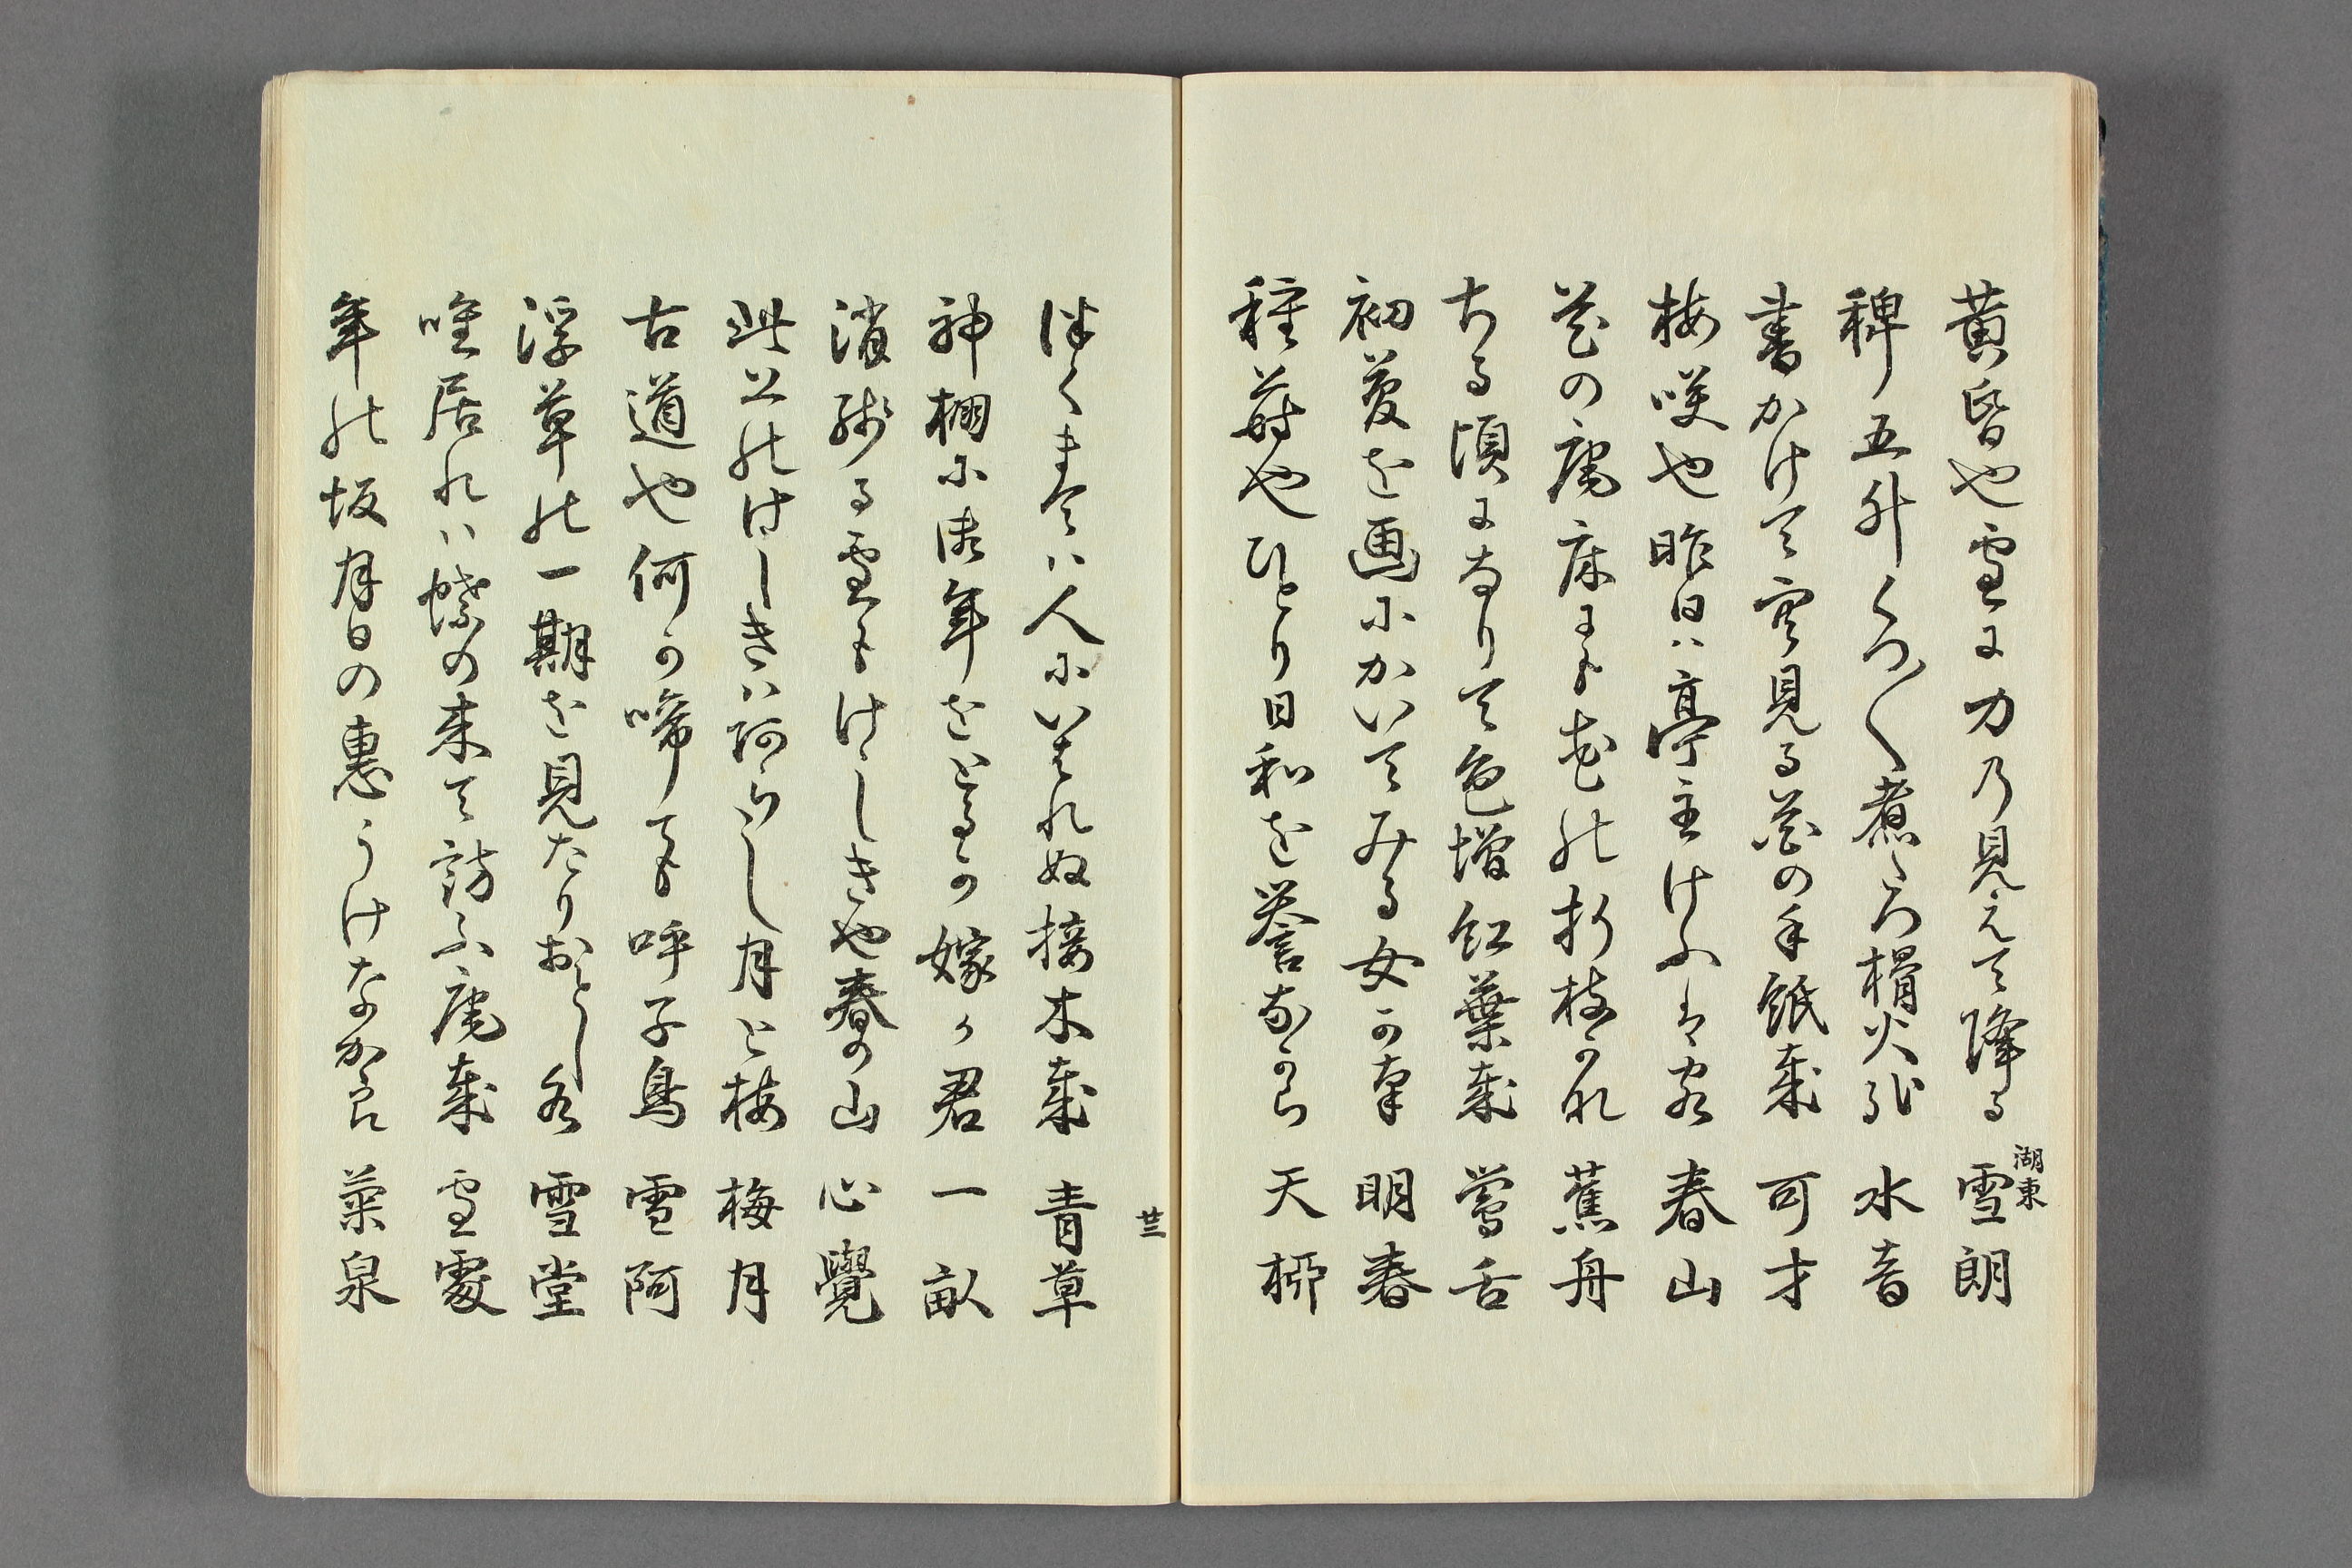 黄昏や雪に力の見えて降る 湖東 雪朗
稗五升くつ〱煮へつ榾火哉 水音
書かけて寒見る花の手紙哉 可才
梅咲や昨日は亭主けふは客 春山
花の庵床にも花の折枝かな 蕉舟
ちる頃になりて色増紅葉哉 鶯舌
初夢を画にかいてみる女かな 明春
種蒔やひとり日和を誉なから 天柳
咲くまては人にいはれぬ接木哉 青草
廿三
神棚に年をとるか嫁か君 一畝
消残る雪もけしきや春の山 心覺
此上のけしきは阿らし月と梅 梅月
古道や何か啼ても呼子鳥 雪阿
浮草の一期を見たりおとし水 雪堂
唯居れは蝶の来て訪ふ庵哉 雪處
年の坂月日の恵うけなから 菜泉